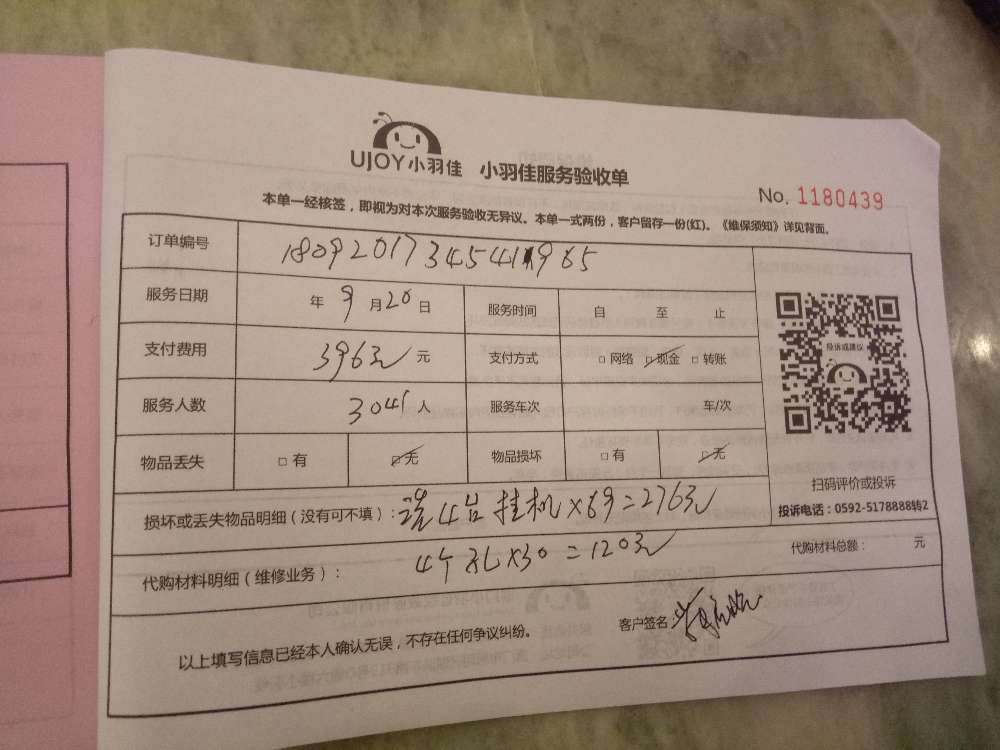 UJOY小羽佳 小羽佳服务验收单
No. 1180439
本单一经核签，即视为对本次服务验收无异议。本单一式两份，客户留存一份(红)。《维保须知》详见背面。
订单编号
服务日期 年 9 月 20 日 服务时间 自 至 止
支付费用 396元 元 支付方式 □ 网络 □ 现金 □ 转账
服务人数 3041 人 服务车次 车/次
物品丢失 □ 有 □ 无 物品损坏 □ 有 □ 无
投诉或建议
扫码评价或投诉
投诉电话：0592-5178888转2
损坏或丢失物品明细（没有可不填）：洗4台挂机×69=276元
代购材料明细（维修业务）：4个孔×30=120元
代购材料总额： 元
以上填写信息已经本人确认无误，不存在任何争议纠纷。
客户签名：